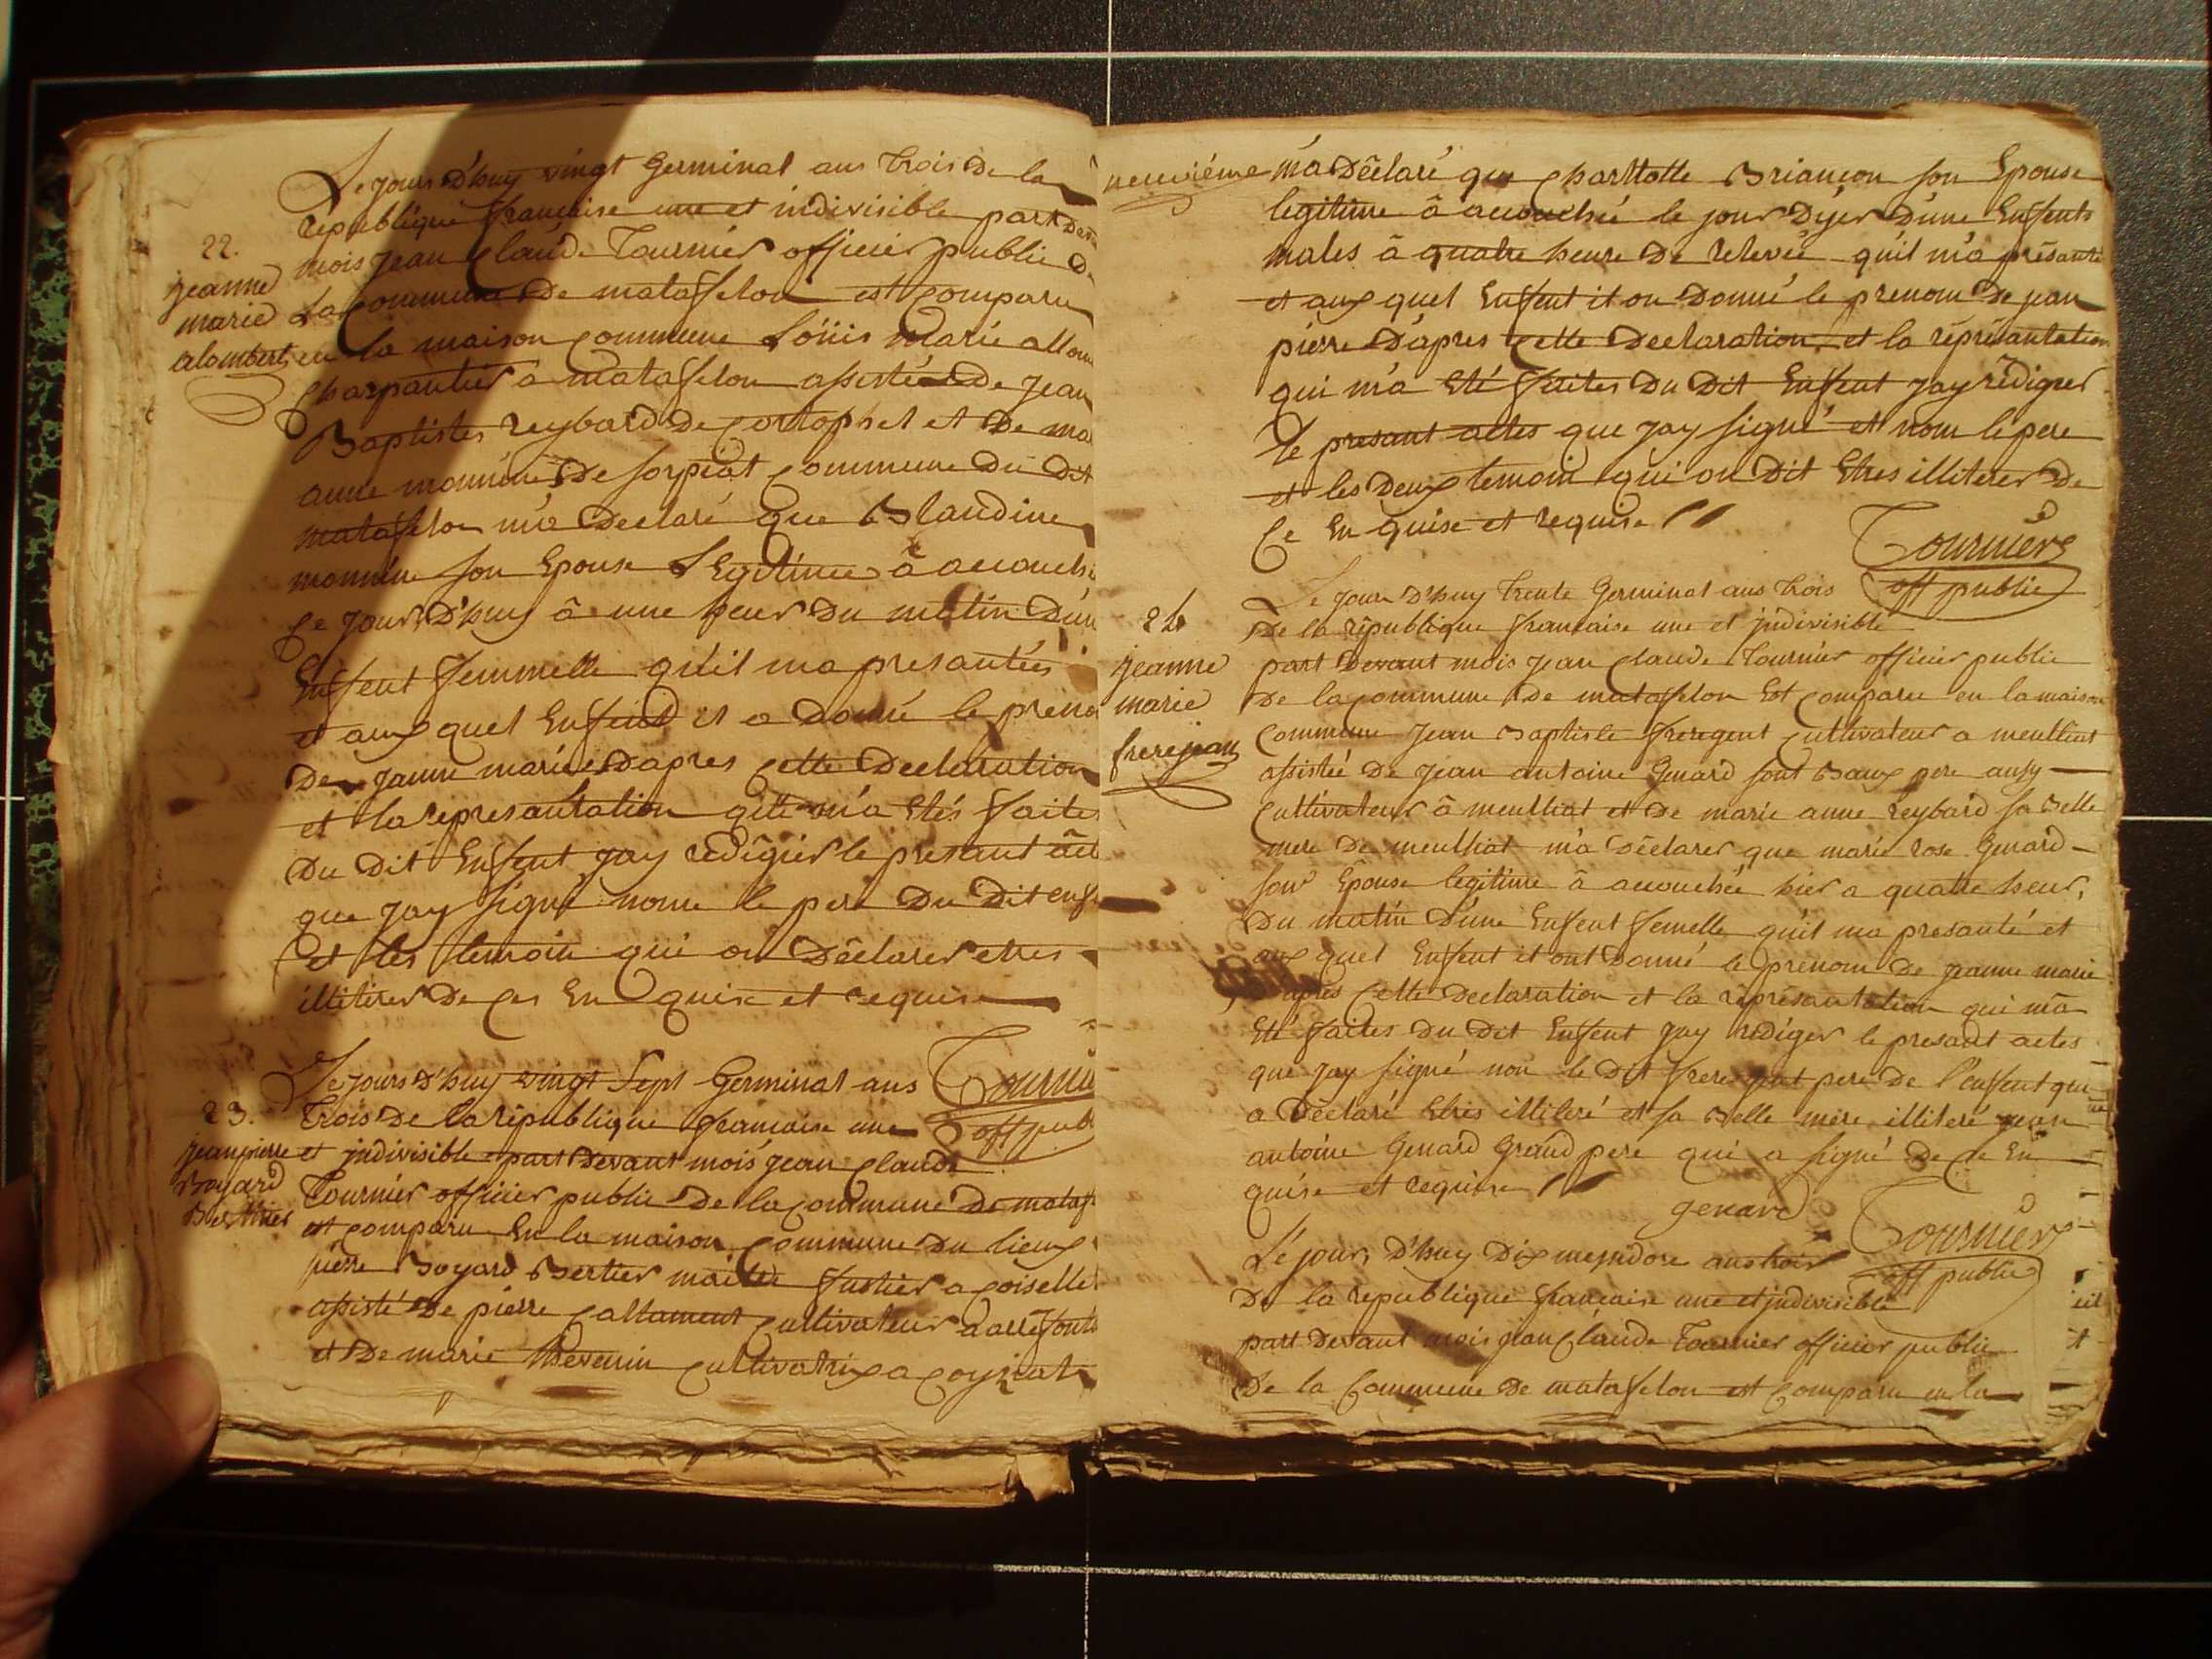 Le jours d'huy vingt Germinal ans trois de la
république française une et indivisible part deva
22.
mois jean Claude Tournier officier public d
jeanne
marie
alombert
La commune de matafelon est comparu
en la maison commune Loüis Marie allom
charpantier a matafelon assistée de jean
Baptistes reybard de cortophel et de ma
anne monnine de sorpiat commune du dit
matafelon m'a declaré que Blandine
monnine son Epouse Legitime â accouch
ce jours d'huy â une heur du matin d'un
Enfent femmelle qu'il ma presantées
et aux quel Enfent il a donné le preno
de janne marie dapres cette declaration
et la represantation qui m'a etés faites
du dit Enfent jay redigier le presant act
que jay signé nonn le pere du dit enf
et les temoin qui on déclarer etres
illitirer de ces En quise et requise
Tourni
off pub
Le jours d'huy vingt sept Germinal ans
23.
jean pierre
Boyard
Bertier
trois de la république francaise une
et jndivisible part devant mois jean Claude
Tournier officier public de la commune de mataf
est comparu En la maison commune du lieux
pierre Boyard Bertier maitre fustier a coiselle
assisté de pierre Caltament cultivateur a
et de marie thevenin cultivatrix a coysiat
neuviéme m'a déclaré que charttotte Briançon son Epouse
legitime â accouchée le jour d'yer d'une Enfents
males â quatre heure de relevée qu'il m'a présanté
et aux quel Enfent il on donné le prenom de jean
pierre d'apres cette declaration et la réprésantation
qui m'a été faites du dit Enfent jay rédiger
le presant actes que jay signé et nom le pere
et les deux temoin qui on dit Etres illiterer de
Ce En quise et requise
Tournier
off public
24
jeanne
marie
frerejean
Le jour d'huy trente Germinal ans trois
De la république francaise une et jndivisible
part devant mois jean claude Tournier officier public
de la commune de matafelon Est comparu en la maison
commune jean Baptiste freregent cultivateur a meulliat
assistée de jean antoine Genard sont Baux pere aussy
cultivateur â meulliat et de marie anne reybard sa belle
mere de meulliat m'a déclarer que marie rose Genard
son Epouse legitime â accouchée hier a quatre heur,
du matin d'une Enfent femelle qu'il ma presanté et
aux quel Enfent il ont donné le prenom de jeanne marie
d'apres cette declaration et la réprésantation qui m'a
Eté faites du dit Enfent jay rediger le presant actes
que jay signé non le dit frere jent pere de l'enfent qui
a declaré Etris illiteré et sa Belle mere illiteré jean
antoine Genard Grand pere qui a signé de ce En
quise et requise
genard
Tournier
off public
Le jour, d'huy dix messidore ans trois
de la republique française une et jndivisible
part devant mois jean Claude Tournier officier public
de la commune de matafelon est comparu en la